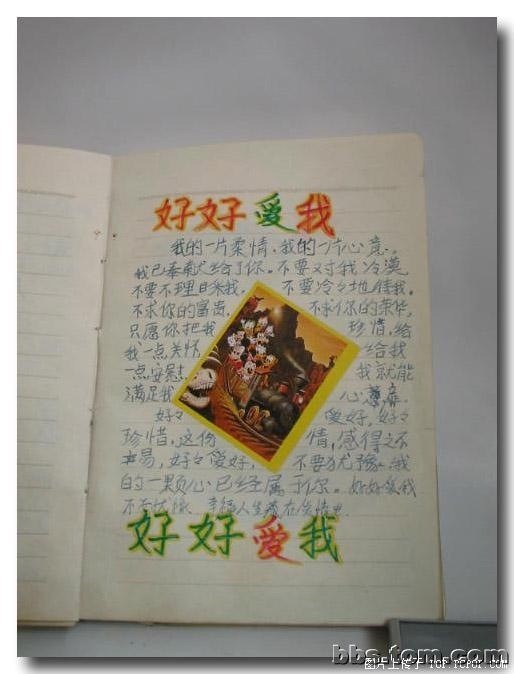 好好爱我
我的一片柔情、我的一片心意,
我已奉献给了你。不要对我冷漠
不要不理睬我, 不要冷冷地待我。
不求你的富贵, 不求你的荣华,
只愿你把我 珍惜,给
我一点关怀 给我
一点安慰 我就能
满足我 心
好々 爱好,好々
珍惜,这份 情,感得之不
易,好々爱好, 不要犹豫、我
的一颗心已经属于你。好好爱我
不要犹豫 幸福人生 在
好好爱我
bbs.tom.com
图片上传于